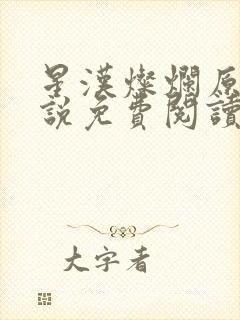 星漢燦爛原
說免費閱讀
大字者